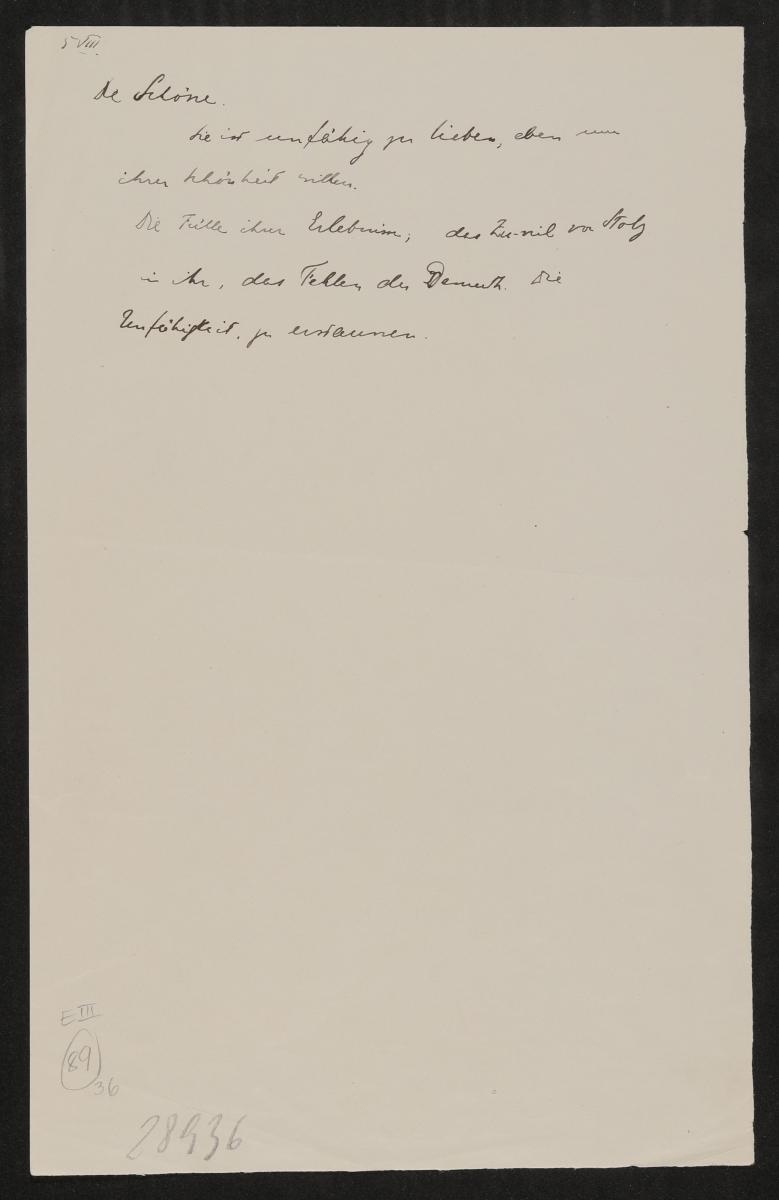 5 VIII.
Die Schöne.
Sie ist unfähig zu lieben, eben um
ihrer Schönheit willen.
Die Fülle ihrer Erlebnisse; das Zu-viel von Stolz
in ihr, das Fehlen der Demuth. Die
Unfähigkeit, zu erstaunen.
E III
89
36
28936